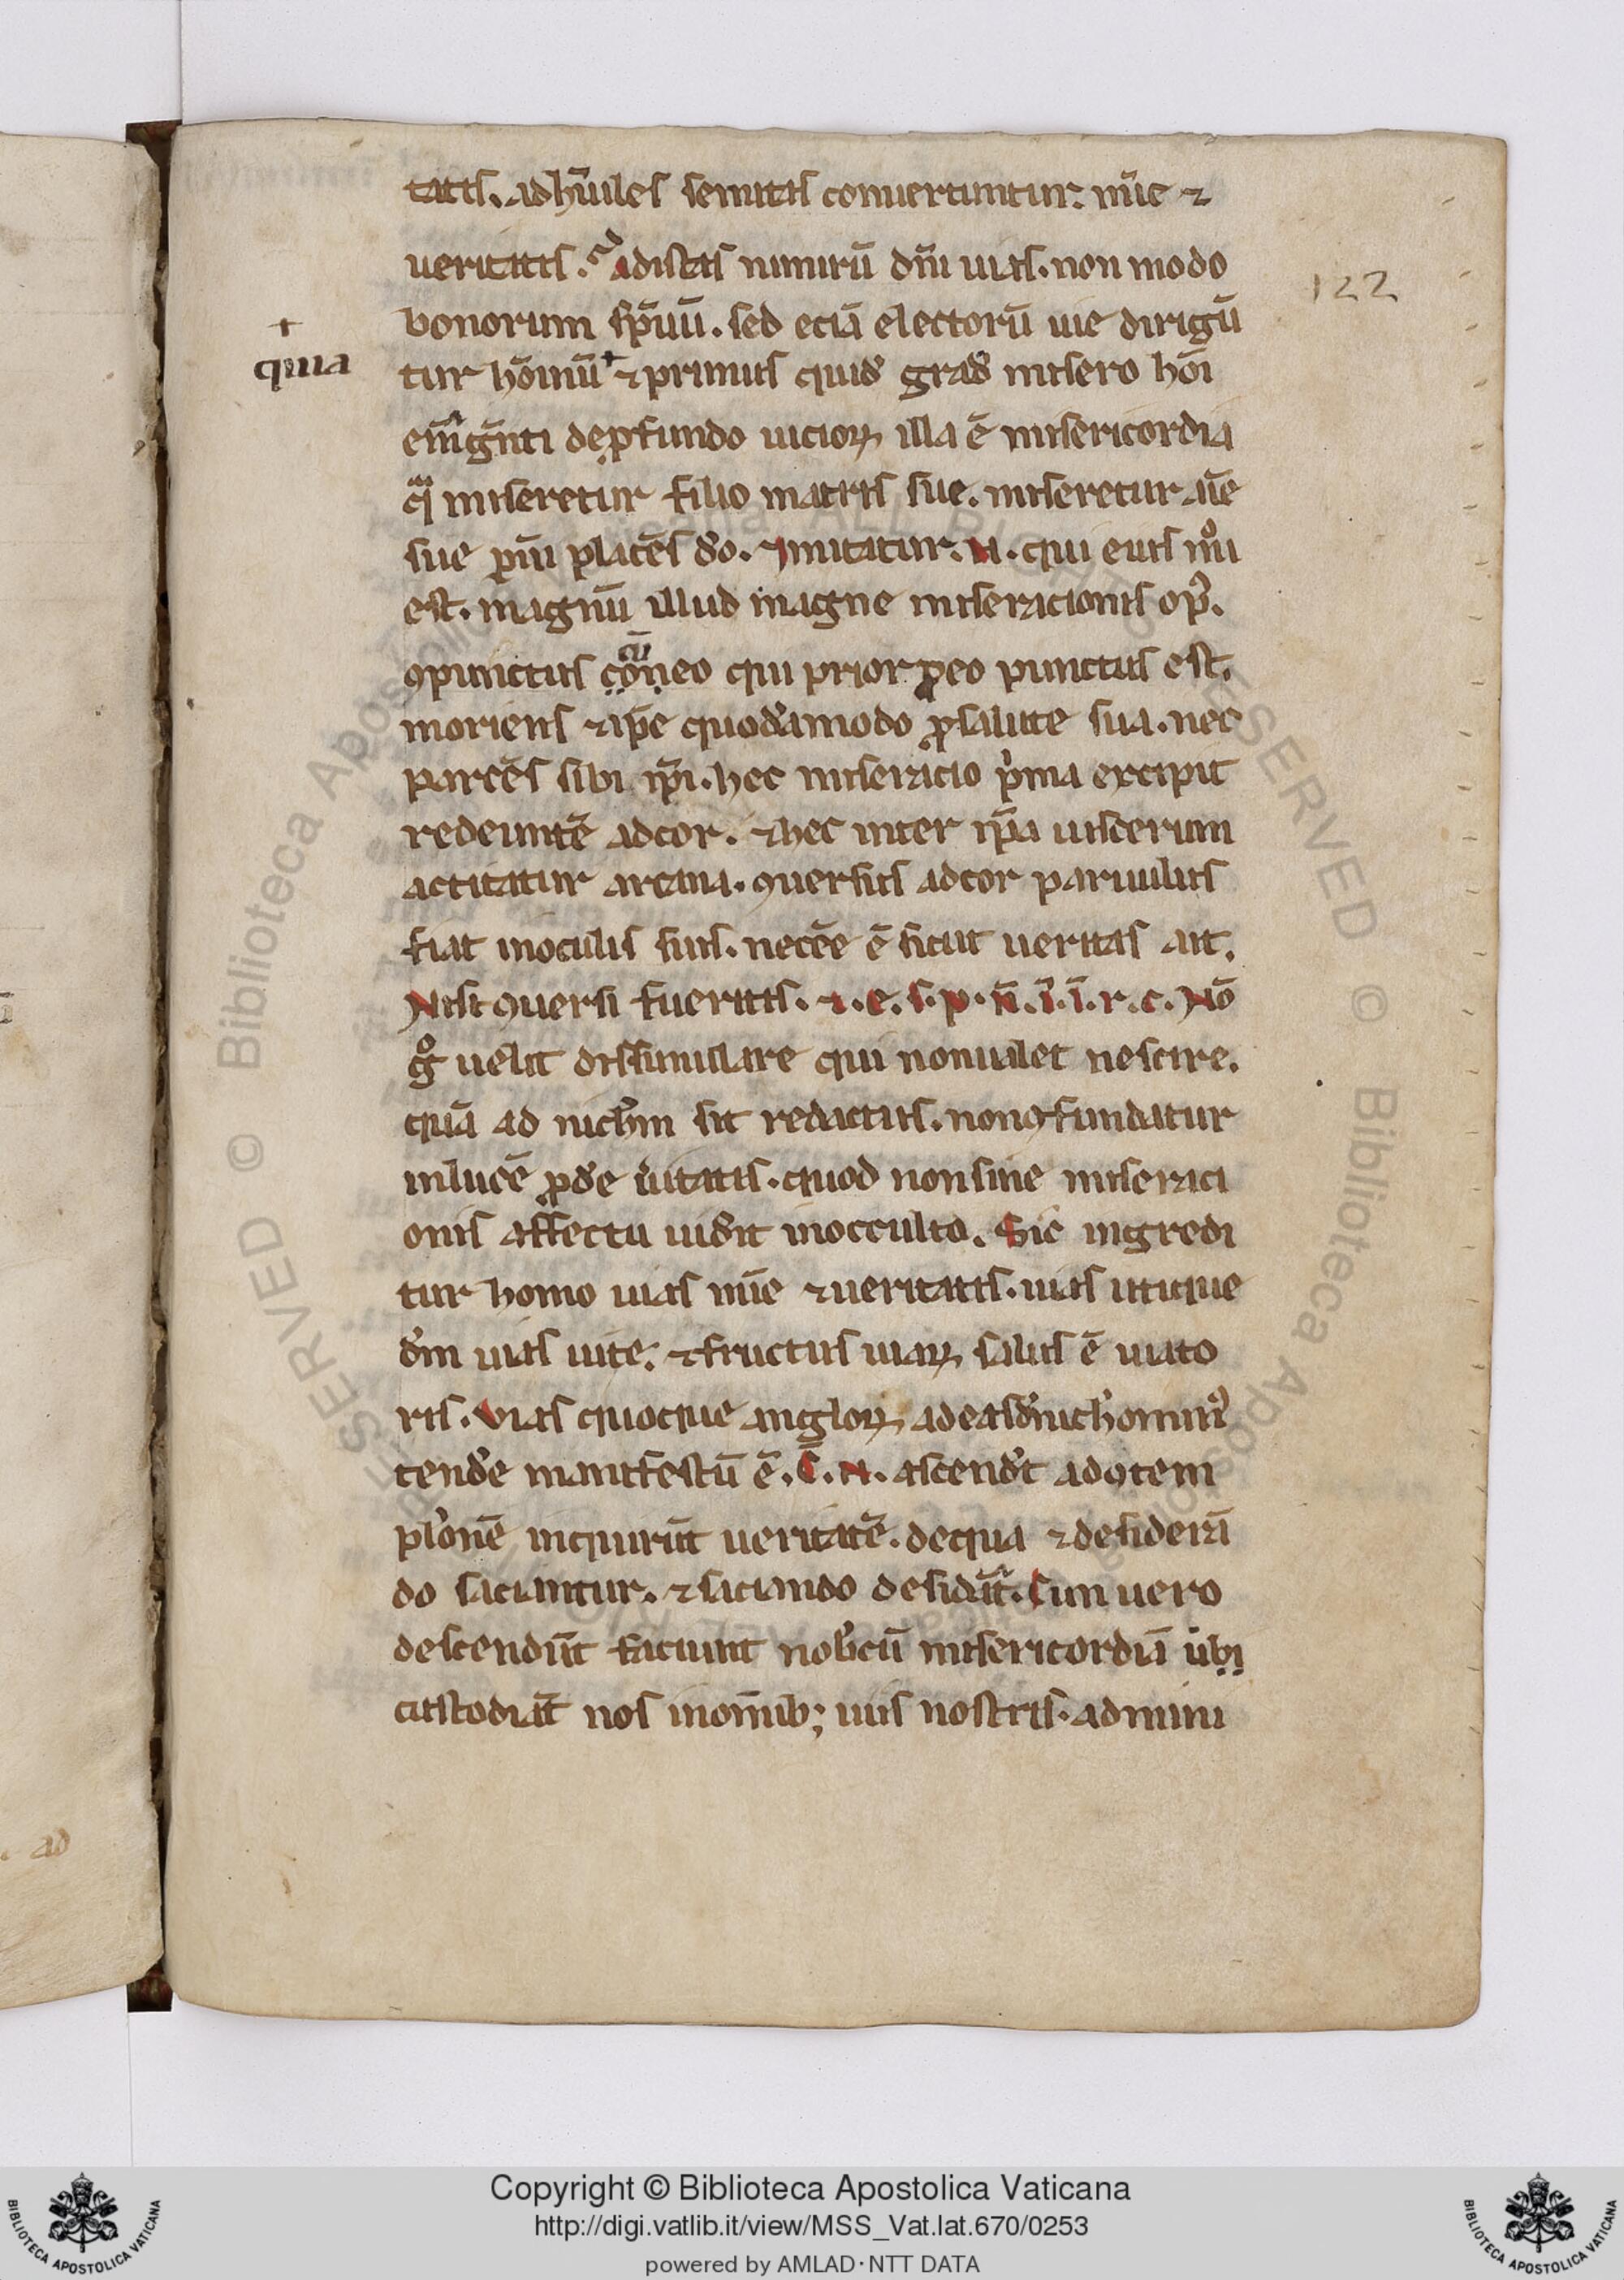 tatis. ad hūiles semitas conuertuntur. mīe ⁊
ueritatis. Ad istas nimirū dn̄i uias. non modo
122
bonorum sp̄uū. sed eciā electorū uie dirigū
quia
tur hōinū ⁊ primus quid grad misero hōi
em̄gn̄ti de pfundo uicioꝝ illa ē misericordia
q̄ miseretur filio matris sue. miseretur aīe
sue p̄m placēs do. Imitatur. N. qui eius mo
est. magnū illud magne miseracionis op᷒.
ꝯpunctus con eo cū qui prior p eo punctus est.
moriens ⁊ ip̄e quodamodo ꝓ salute sua. nec
parcēs sibi ip̄i. hec miseracio p̍ma excipit
redeuntē ad cor. ⁊ hec inter ip̄a uiscerum
actitatur arcana. ꝯuersus ad cor paruulus
fiat in oculis suis. necēe ē sicut ueritas ait.
Nisi ꝯuersi fueritis. ⁊. e. s. p. n̄. ī. ī. r. c. Nō
gͦ uelit dissimulare qui non ualet nescire.
quā ad nichm sit redactus. non ꝯfundatur
in lucē ꝓde uitatis. quod non sine miseraci
onis affectu uidit in occulto. Sic ingredi
tur homo uias mīe ⁊ ueritatis. uias utique
dm̄ uias uite. ⁊ fructus uiaꝝ salus ē uiato
ris. Vias quoque angloꝝ ad easd nich̍omin᷒
tende manifestū ē. S̄. N. ascendt ad ꝯtem
pl̍onē inquirūt ueritatē. de qua ⁊ desiderā
do saciantur. ⁊ saciando desidāt. Cum uero
descendūt faciunt nobcū misericordiā ubi
custodiāt nos in om̄ib; uiis nostris. ad mini
. ad
Copyright © Biblioteca Apostolica Vaticana
http://digi.vatlib.it/view/MSS_Vat.lat.670/0253
powered by AMLAD·NTT DATA
BIBLIOTECA APOSTOLICA VATICANA
BIBLIOTECA APOSTOLICA VATICANA